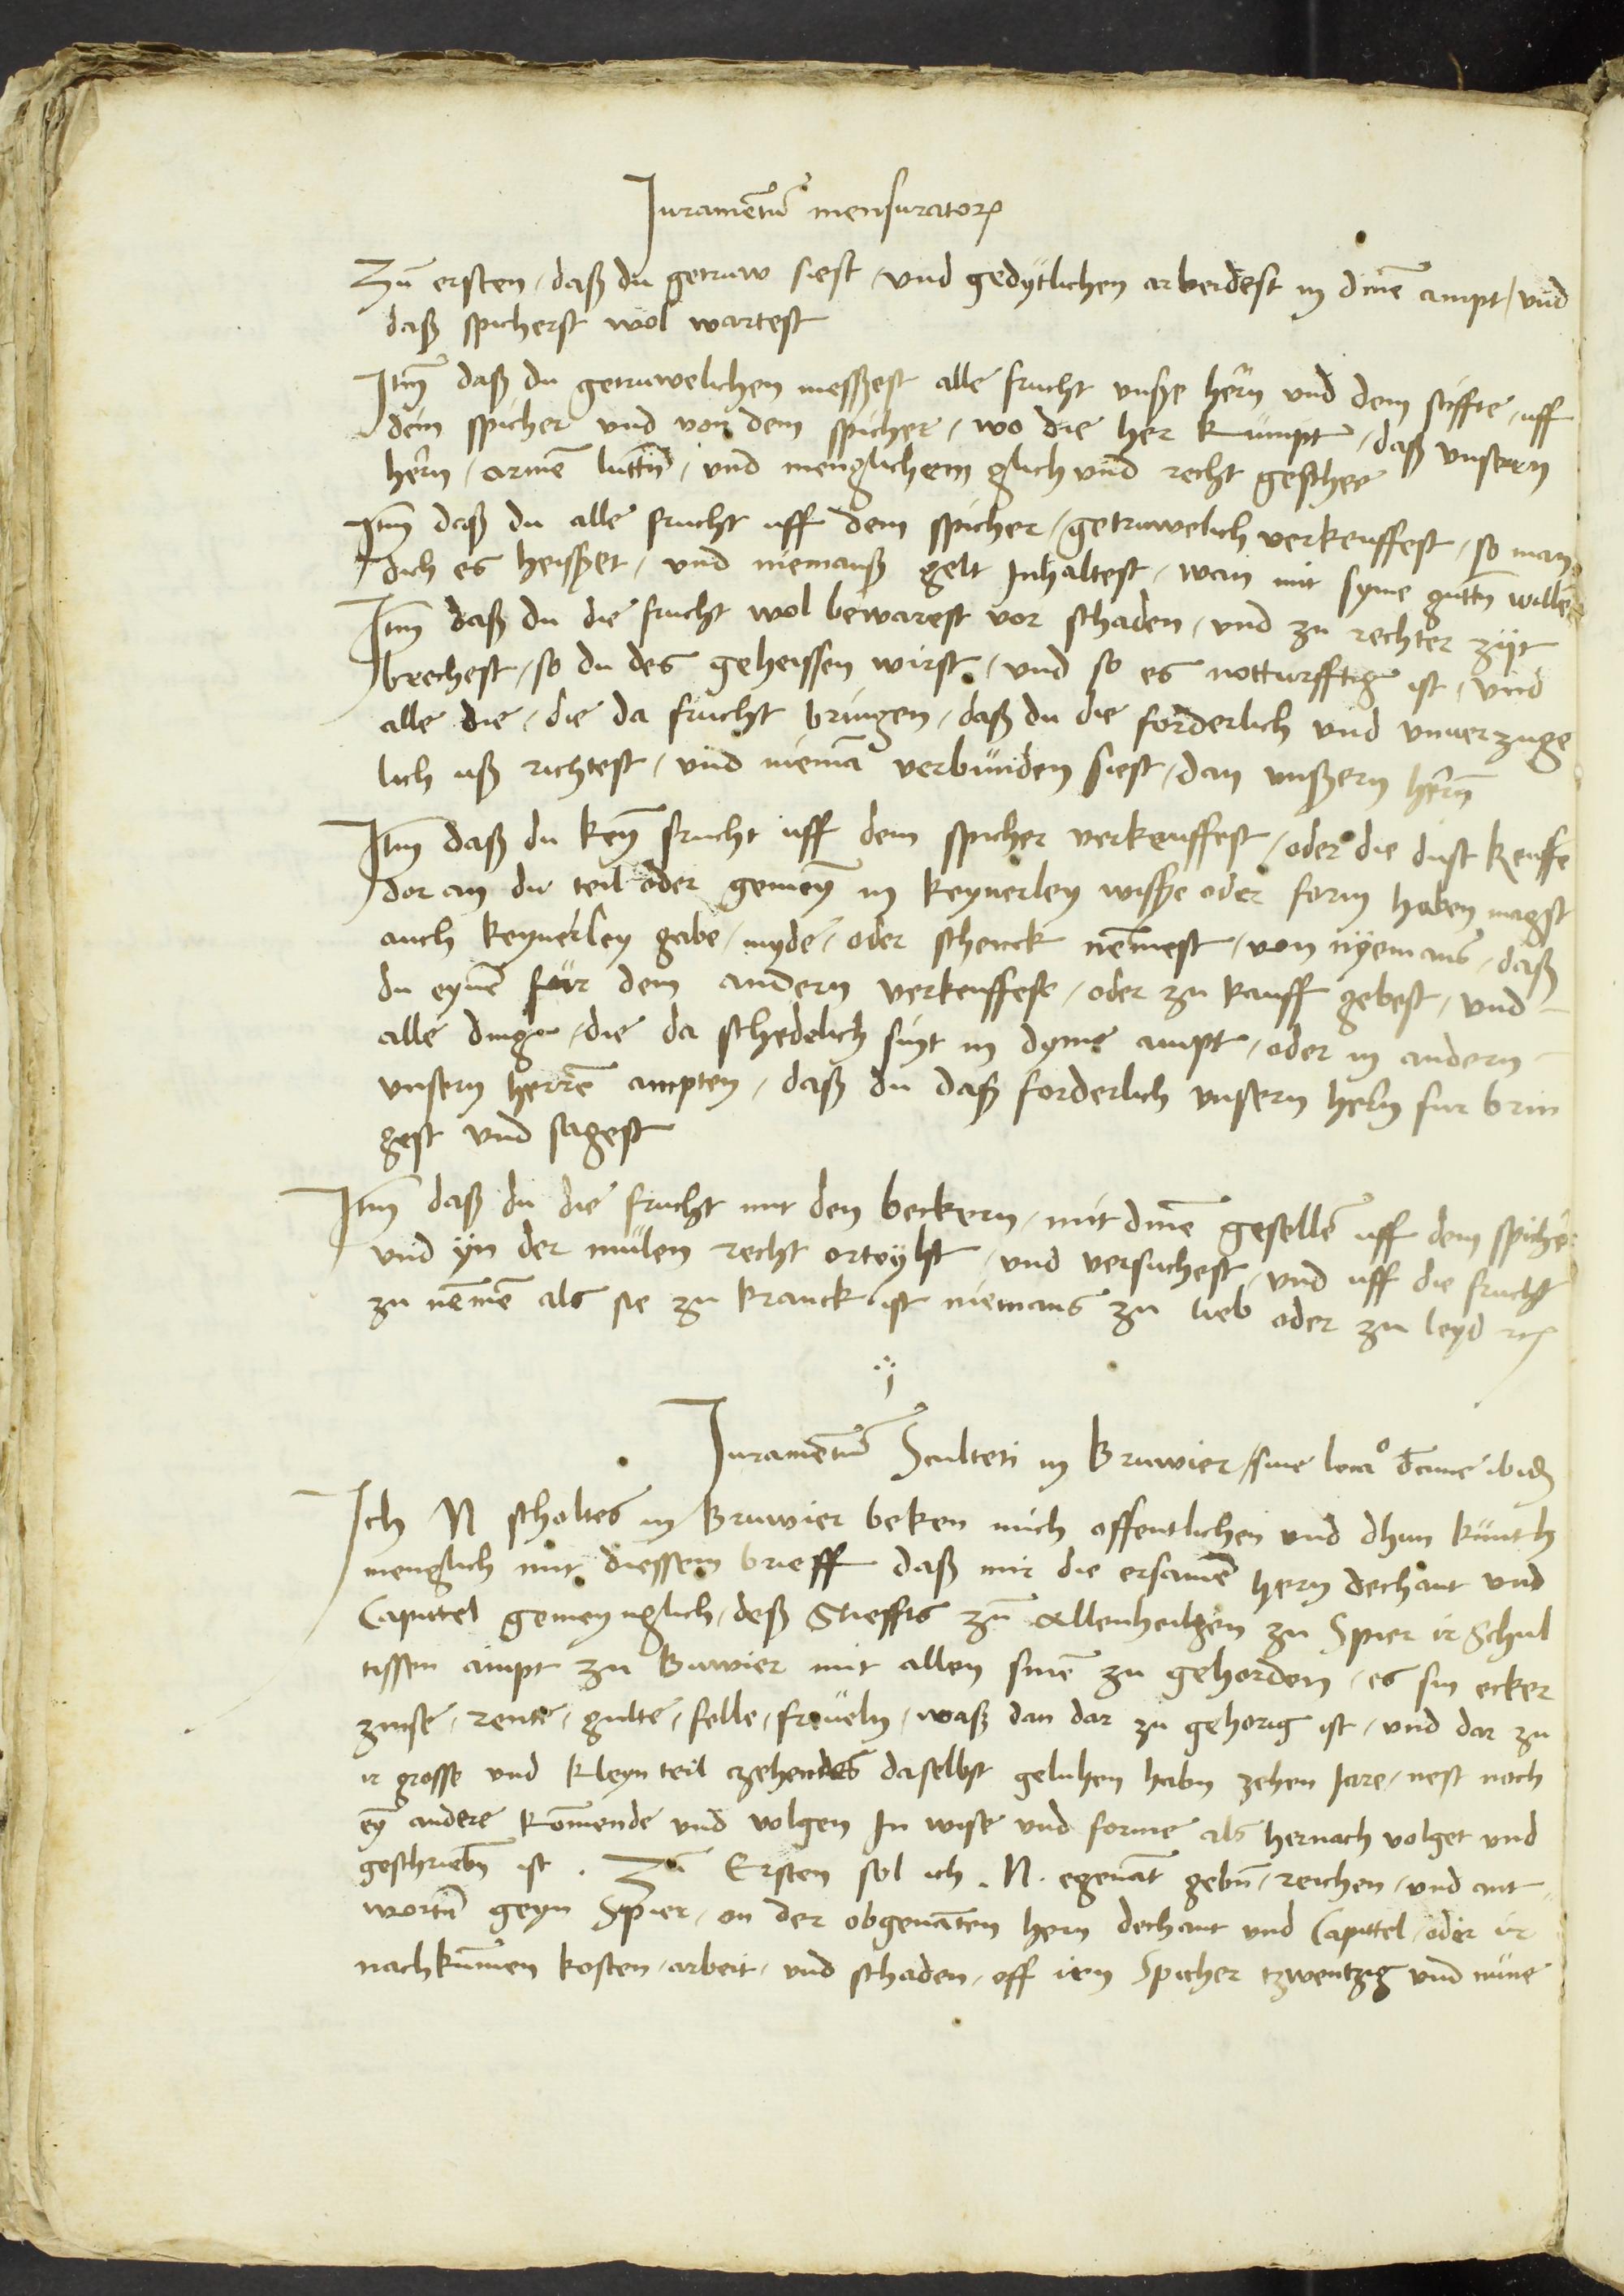 Juramentū mensuratorꝝ
Zū ersten / daß du getruw siest / vnd gedytlichen arbeidest in dinē ampt / vnd
daß spicherst wol wartest
Jtm̄ daß du getruwelichen messest alle frucht vnsse hern̄ vnd dem stiffte / uff
dem spicher vnd von dem spicher / wo die her kumpt / daß vnssern
hern̄ / armē luttn̄ / vnd menglichem glich vnd recht geschee
Jtm̄ daß du alle frucht uff dem spicher / getruwelich verkeuffest / so man
dich es heisset / vnd niemanß gelt Jnhaltest / wan mit syme guttn̄ willē
Jtm̄ daß du die frucht wol bewarest vor schaden / vnd zu rechter zyt
brechest / so du des geheissen wirst / vnd so es notturfftig ist / vnd
alle die / die da frucht bringen / daß du die forderlich vnd vnuerzuge
lich uß richtest / vnd niemā verbunden siest / dan vnßern hern̄
Jtm̄ daß du keyn̄ frucht uff dem spicher verkeuffest / oder die dust keuffē
dor an du teil oder gemeyn̄ in keynerley wisse oder form haben magst
auch keynerley gabe / myde / oder schenck nēmest / von nyemans / daß
du eynē fur dem andern verkeuffest / oder zu kauff gebest / vnd
alle ding / die da schedelich sint in dyme ampt / oder in andern
vnsern herrē ampten / daß du daß forderlich vnsern hern̄ fur brin
gest vnd sagest
Jtm̄ daß du die frucht mit den beckern / mit dinē gesellē uff dem spicher
vnd yn der mulen recht orteylst / vnd versuchest / vnd uff die frucht
zu nēmē als sie zu kranck ist niemans zu lieb oder zu leyd ꝛcꝭ
Juramentū Sculteti in Bruwier / siue loca⁰ decime ibidꝫ
Jch N scholtes in Bruwier beken mich offentlichen vnd dhun kunth
menglich mit diessem brieff daß mir die ersamē hern dechant vnd
Capittel gemeynglich / deß Stieffts zū Allenheilgen zu Spier ir Schul
tissen ampt zu Buwier mit allen sinē zu gehorden / es sin ecker
zinse / rente / gulte / felle / freueln / waß dan dar zu gehorig ist / vnd dar zu
ir grosse vnd kleyn teil czehendes daselbst geluhen habn zehen Jare / nest noch
ey andere kōmende vnd volgen Jn wise vnd forme als hernach volget vnd
geschriebn̄ ist . Zū Ersten sol ich . N . egenāt gebn̄ / reichen / vnd ant
wortn̄ geyn Spier / on der obgenāten hern dechant vnd Capittel / oder ir
nachkūmen kosten / arbeit / vnd schaden / off iren Spicher tzwentzig vnd nune